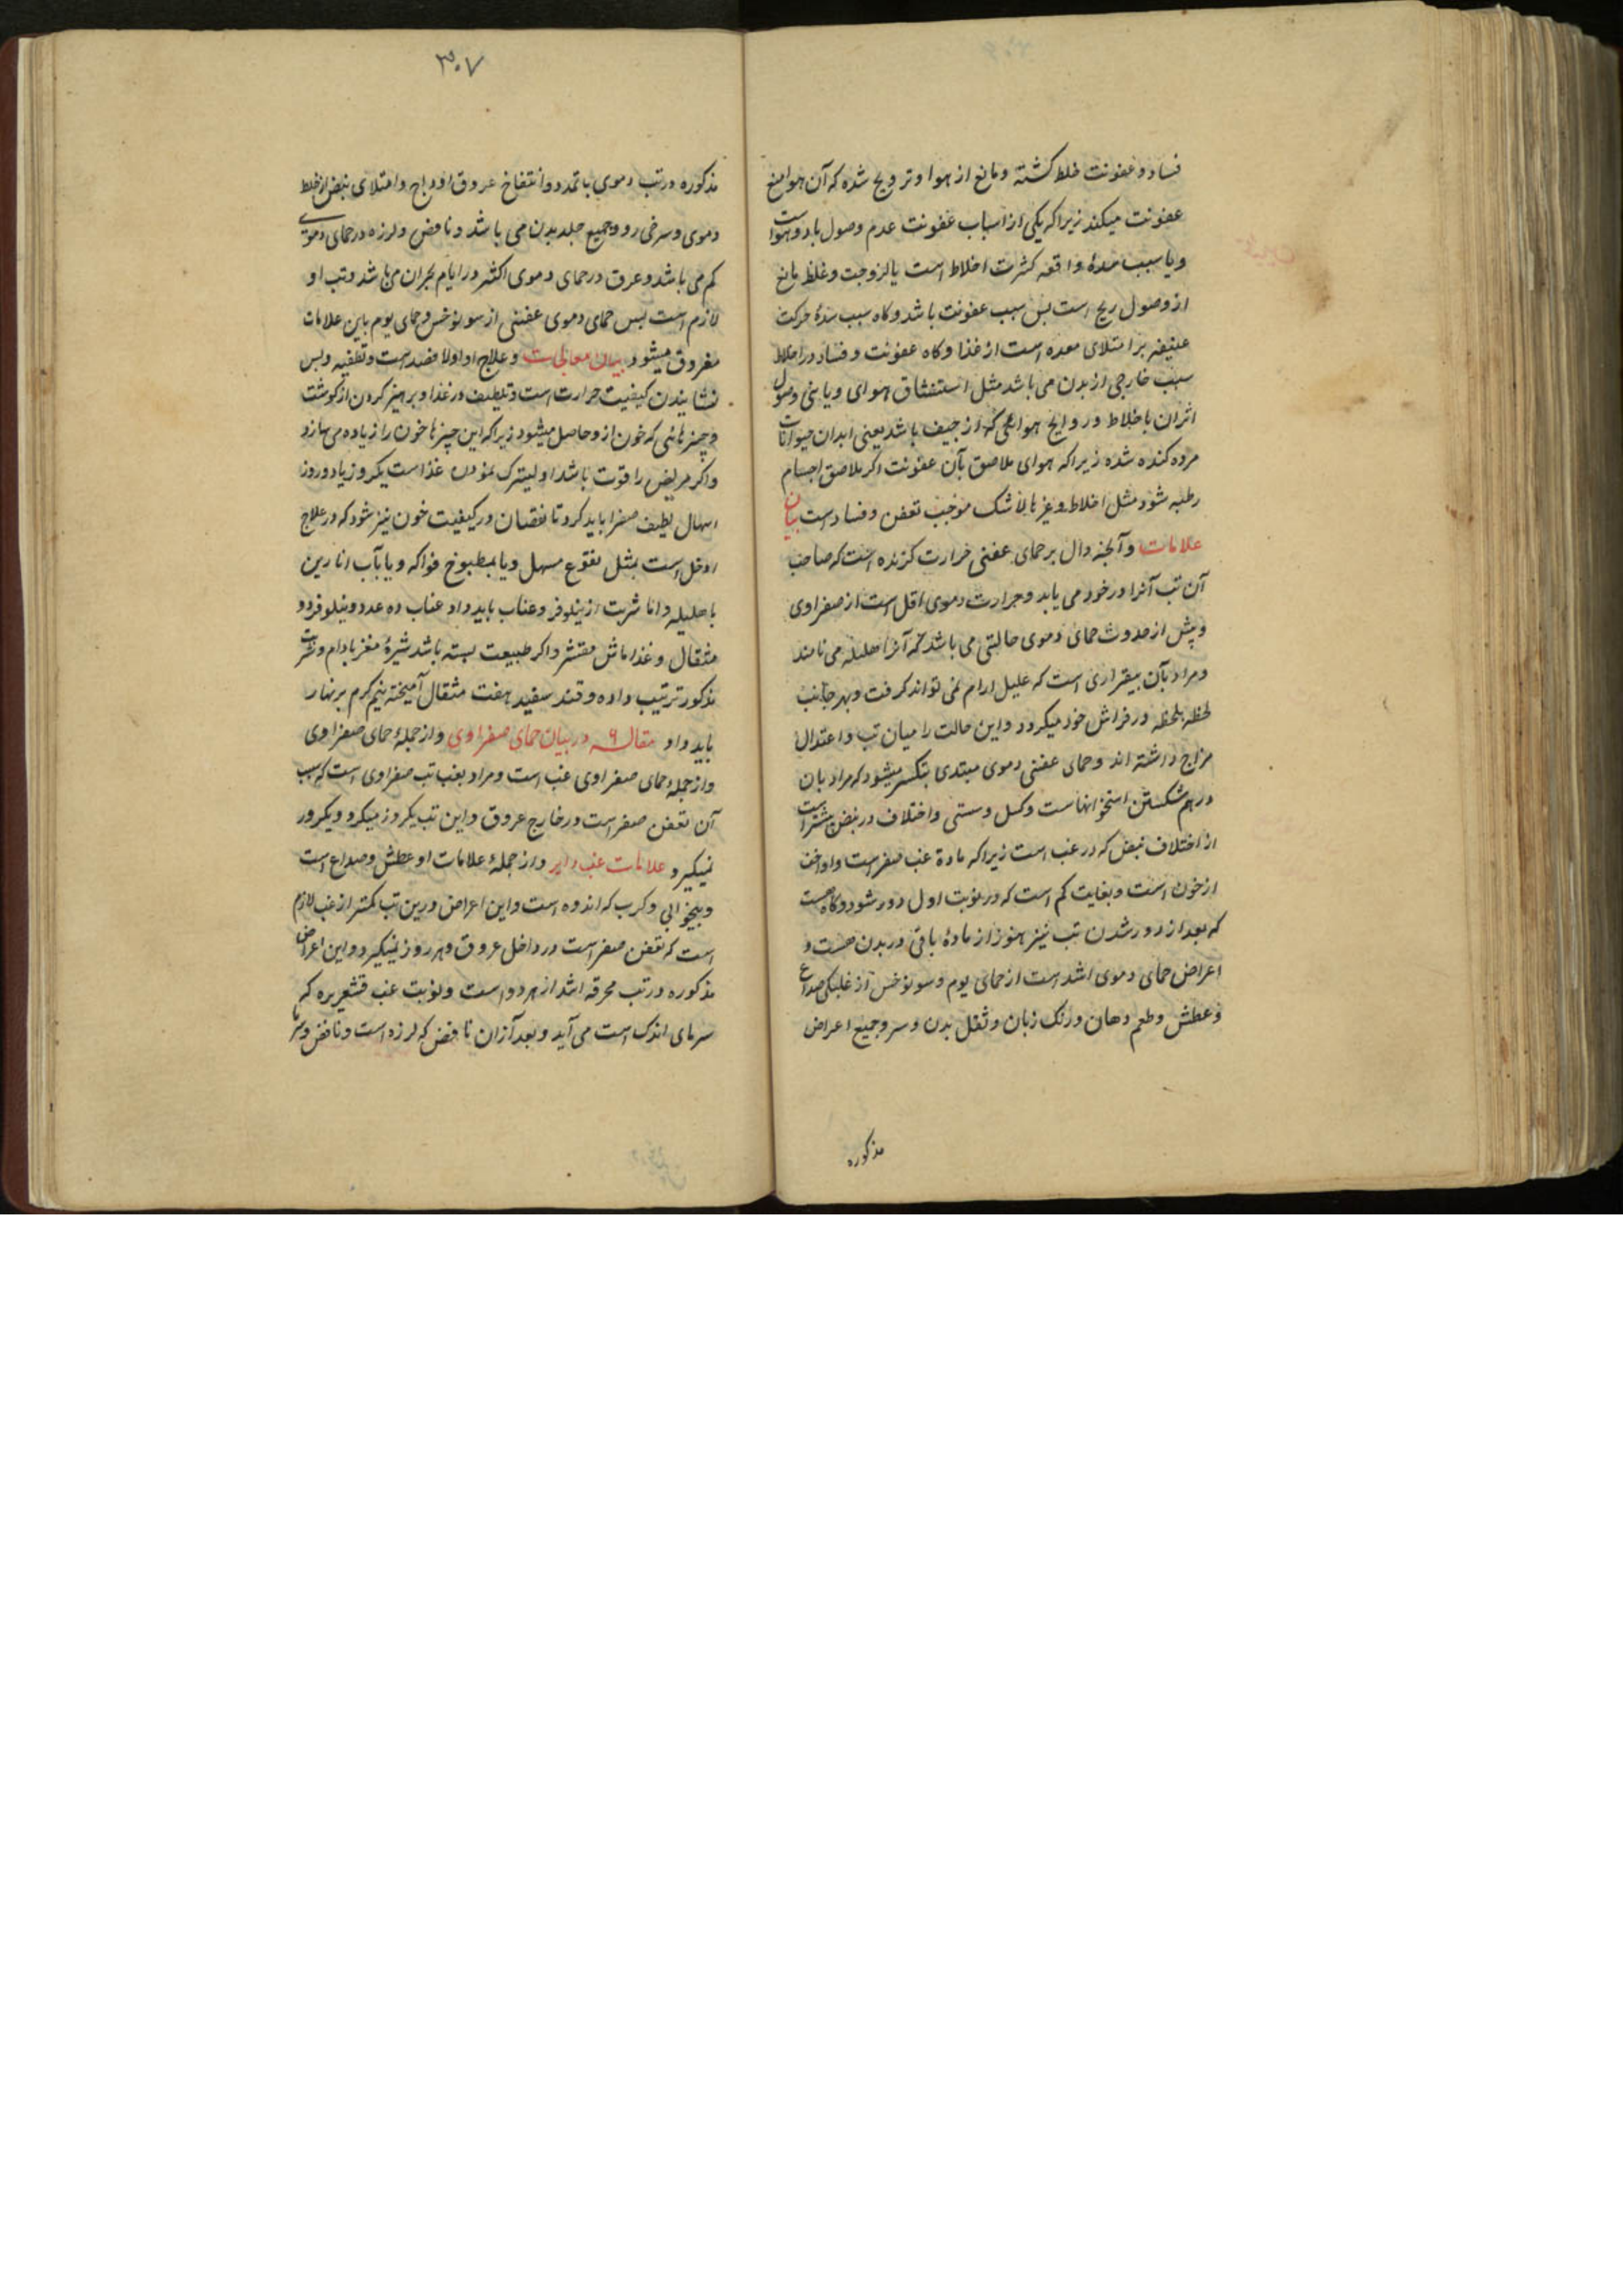 فساد و عفونت خلط کشته و مانع از هوا و ترویح شده که آن هوا منع
عفونت میکند زیرا که یکی از اسباب عفونت عدم وصول باد و هوا است
و یا سبب سدهٔ واقعه کثرت اخلاط است یا لزوجت و غلظ مانع
از وصول ریح است پس سبب عفونت باشد و کاه سبب سدهٔ حرکت
عنیفه بر امتلای معده است از غذا و کاه عفونت و فساد در اخلاط
سبب خارجی از بدن می باشد مثل استنشاق هوای وبایئی و وصول
اثر ان باخلاط و روایح هوائی که از جیف باشد یعنی ابدان حیوانات
مرده کنده شده زیرا که هوای ملاصق بآن عفونت اکر ملاصق اجسام
رطبه شود مثل اخلاط و غیرها لاشک موجب تعفن و فساد است بیان
علامات و آنچه دال بر حمای عفنی حرارت کزنده است که صاحب
آن تب آنرا در خود می یابد و حرارت دموی اقل است از صفراوی
و پیش از حدوث حمای دموی حالتی می باشد که آنرا می نامند
و مراد بآن بیقراری است که علیل ارام نمی تواند کرفت و بهر جانب
لحظه بلحظه در فراش خود میکردد و این حالت را میان تب و اعتدال
مزاج داشته اند و حمای عفنی دموی مبتدی بتکسر میشود که مراد بان
درهم شکستن استخوانهاست و کسل و سستی و اختلاف در نبض بیشتر است
از اختلاف نبض که در غب است زیرا که مادهٔ غب صفراست و او اخف
از خون است و بغایت کم است که در نوبت اول دور شود و کاه هست
که بعد از دور شدن تب نیز هنوز از مادهٔ باقی در بدن هست و
اعراض حمای دموی اشد است از حمای یوم و سونوخس از غلبکی صداع
و عطش و طعم دهان و رنک زبان و ثقل بدن و سر و جمیع اعراض
مذکوره
٣٠٧
مذکوره در تب دموی با تمدد و انتفاخ عروق اوداج و امتلای نبض از خلط
دموی و سرخی رو و جمیع جلد بدن می باشد و نافض و لرزه در حمای دموی
کم می باشد و عرق در حمای دموی اکثر در ایام بحران می باشد و تب او
لازم است پس حمای دموی عفنی از سونوخس و حمای یوم باین علامات
مفروق میشود بیان معالجات و علاج او اولا فصد است و تطفیه و پس
نشایندن کیفیت حرارت است و تلطیف در غذا و برهیز کردن از کوشت
و چیزهائی که خون از و حاصل میشود زیرا که این چیزها خون را زیاده می سازد
و اکر مریض را قوت باشد اولیترک نمودن غذاست یکروز یا دو روز
اسهال لطیف صفرا باید کرد تا نقصان در کیفیت خون نیز شود که در علاج
ادخل است بمثل نقوع مسهل و یا بمطبوخ فواکه و یا بآب انارین
با هلیله و اما شربت از نیلوفر و عناب باید داد عناب ده عدد و نیلوفر دو
مثقال و غذا ماش مقشر و اکر طبیعت بسته باشد شیرهٔ مغز بادام و شربت
مذکور ترتیب داده و قند سفید هفت مثقال آمیخته نیم کرم بر نهار
باید داد مقاله ٩ در بیان حمای صفراوی و از جملهٔ حمای صفراوی
و از جملهٔ حمای صفراوی غب است و مراد بغب تب صفراوی است که سبب
آن تعفن صفراست در خارج عروق و این تب یکروز میکیرد و یکروز
نمیکیرد علامات غب دایر و از جملهٔ علامات او عطش و صداع است
و بیخوابی و کرب که اندوه است و این اعراض درین تب کمتر از غب لازم
است که تعفن صفراست در داخل عروق و هر روز میکیرد و این اعراض
مذکوره در تب محرقه اشد از هر دو است و نوبت غب قشعریره که
سرمای اندک است می آید و بعد آزان نافض که لرزه است و نافض و سرما